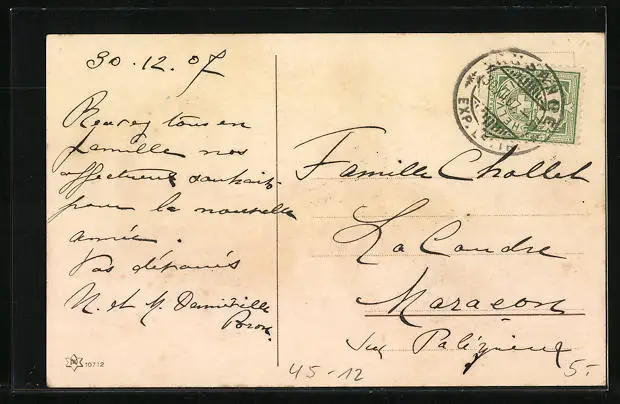 30.12.07
Recevez tous en
famille nos
affectueux souhaits
pour la nouvelle
année.
Vos dévoués
N. et M. Demiéville
Famille Chollet
La Coudre
Maracon
sur Palézieux
10712
45-12
5.-
LAUSANNE
EXP. LETTR.
HELVETIA